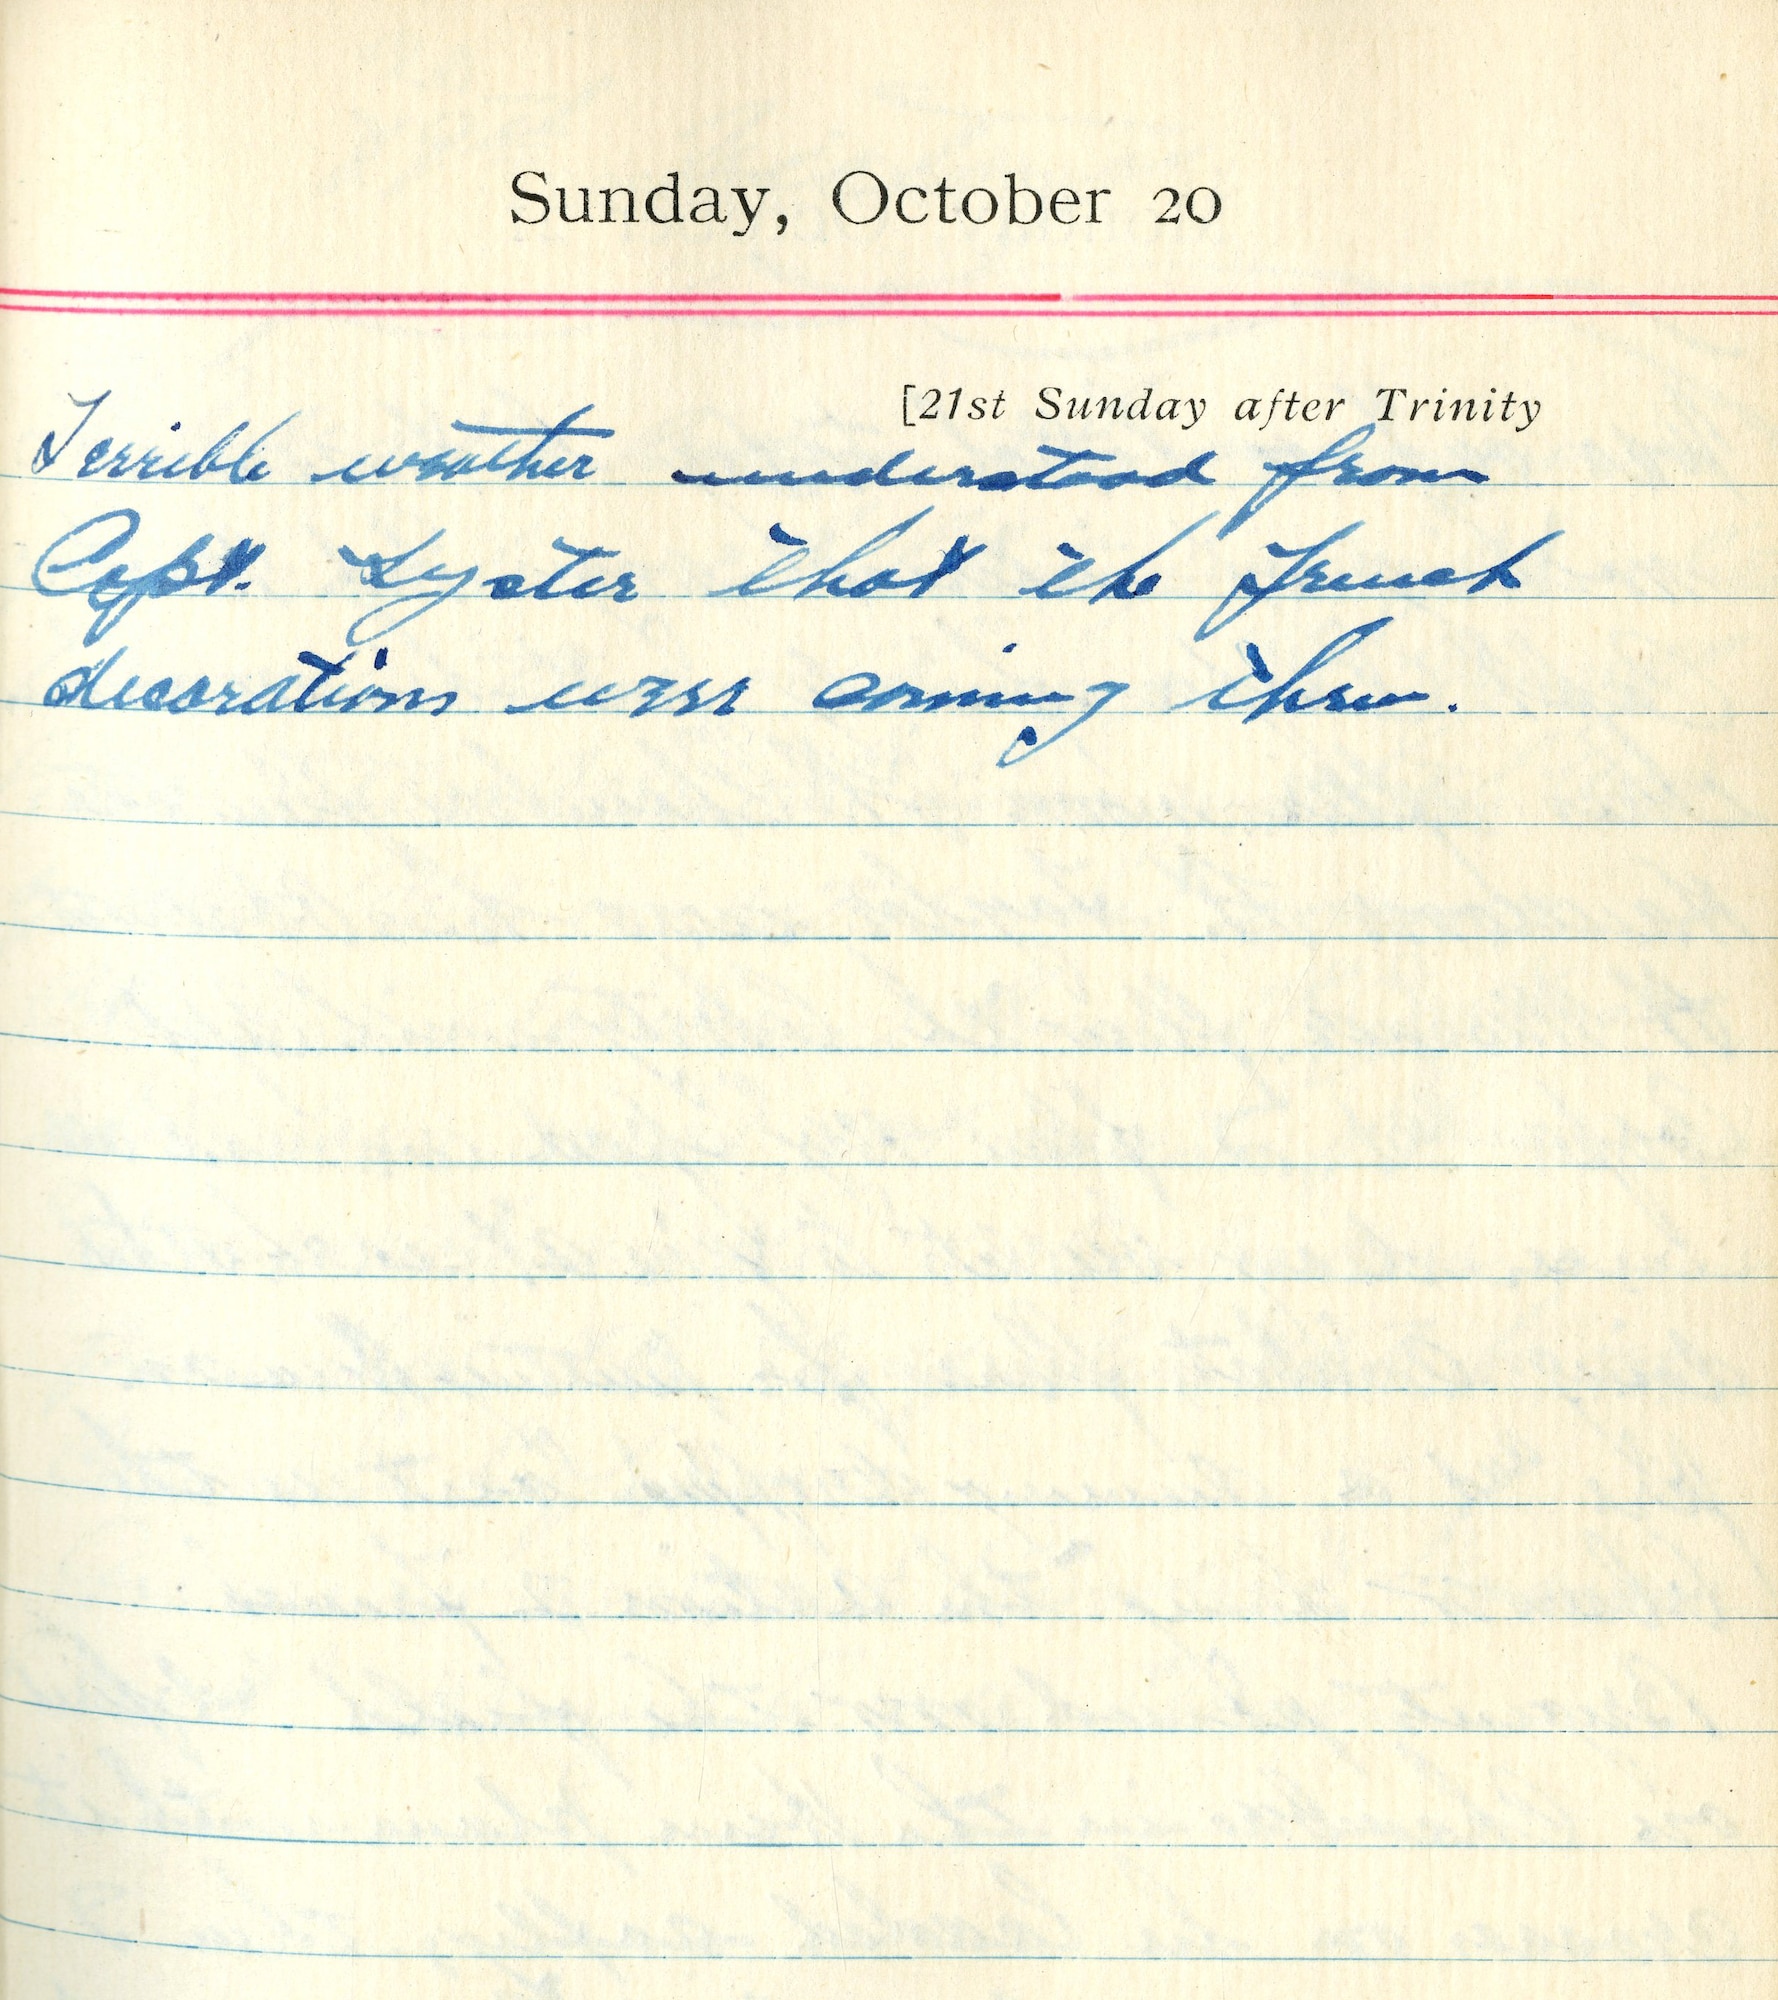 Sunday, October 20
[21st Sunday after Trinity
Terrible weather understood from
Capt. Lyster that the French
decorations were coming thru.